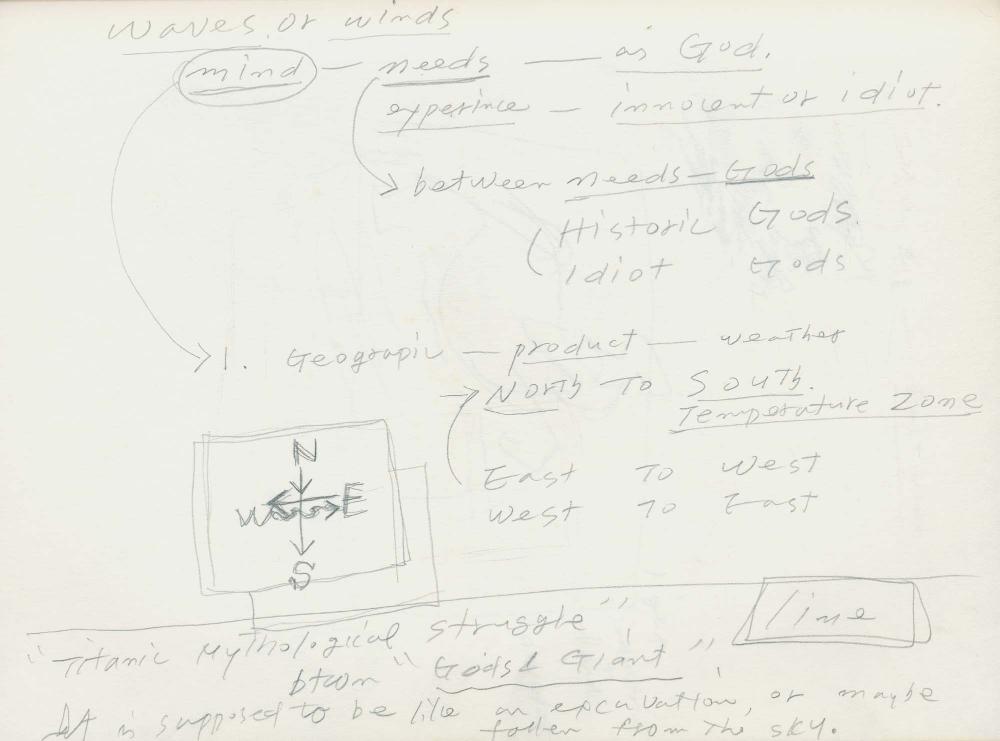 waves or winds
mind — needs — as God.
experince — innocent or idiot.
between needs — Gods
Historic Gods.
Idiot Gods
1. Geograpic — product — weather
North To South.
Temperature Zone
East To West
West To East
N
W E
S
line
"Titanic Mythological struggle"
btwn "Gods & Giant"
It is supposed to be like an excavation, or maybe
fallen from The sky.